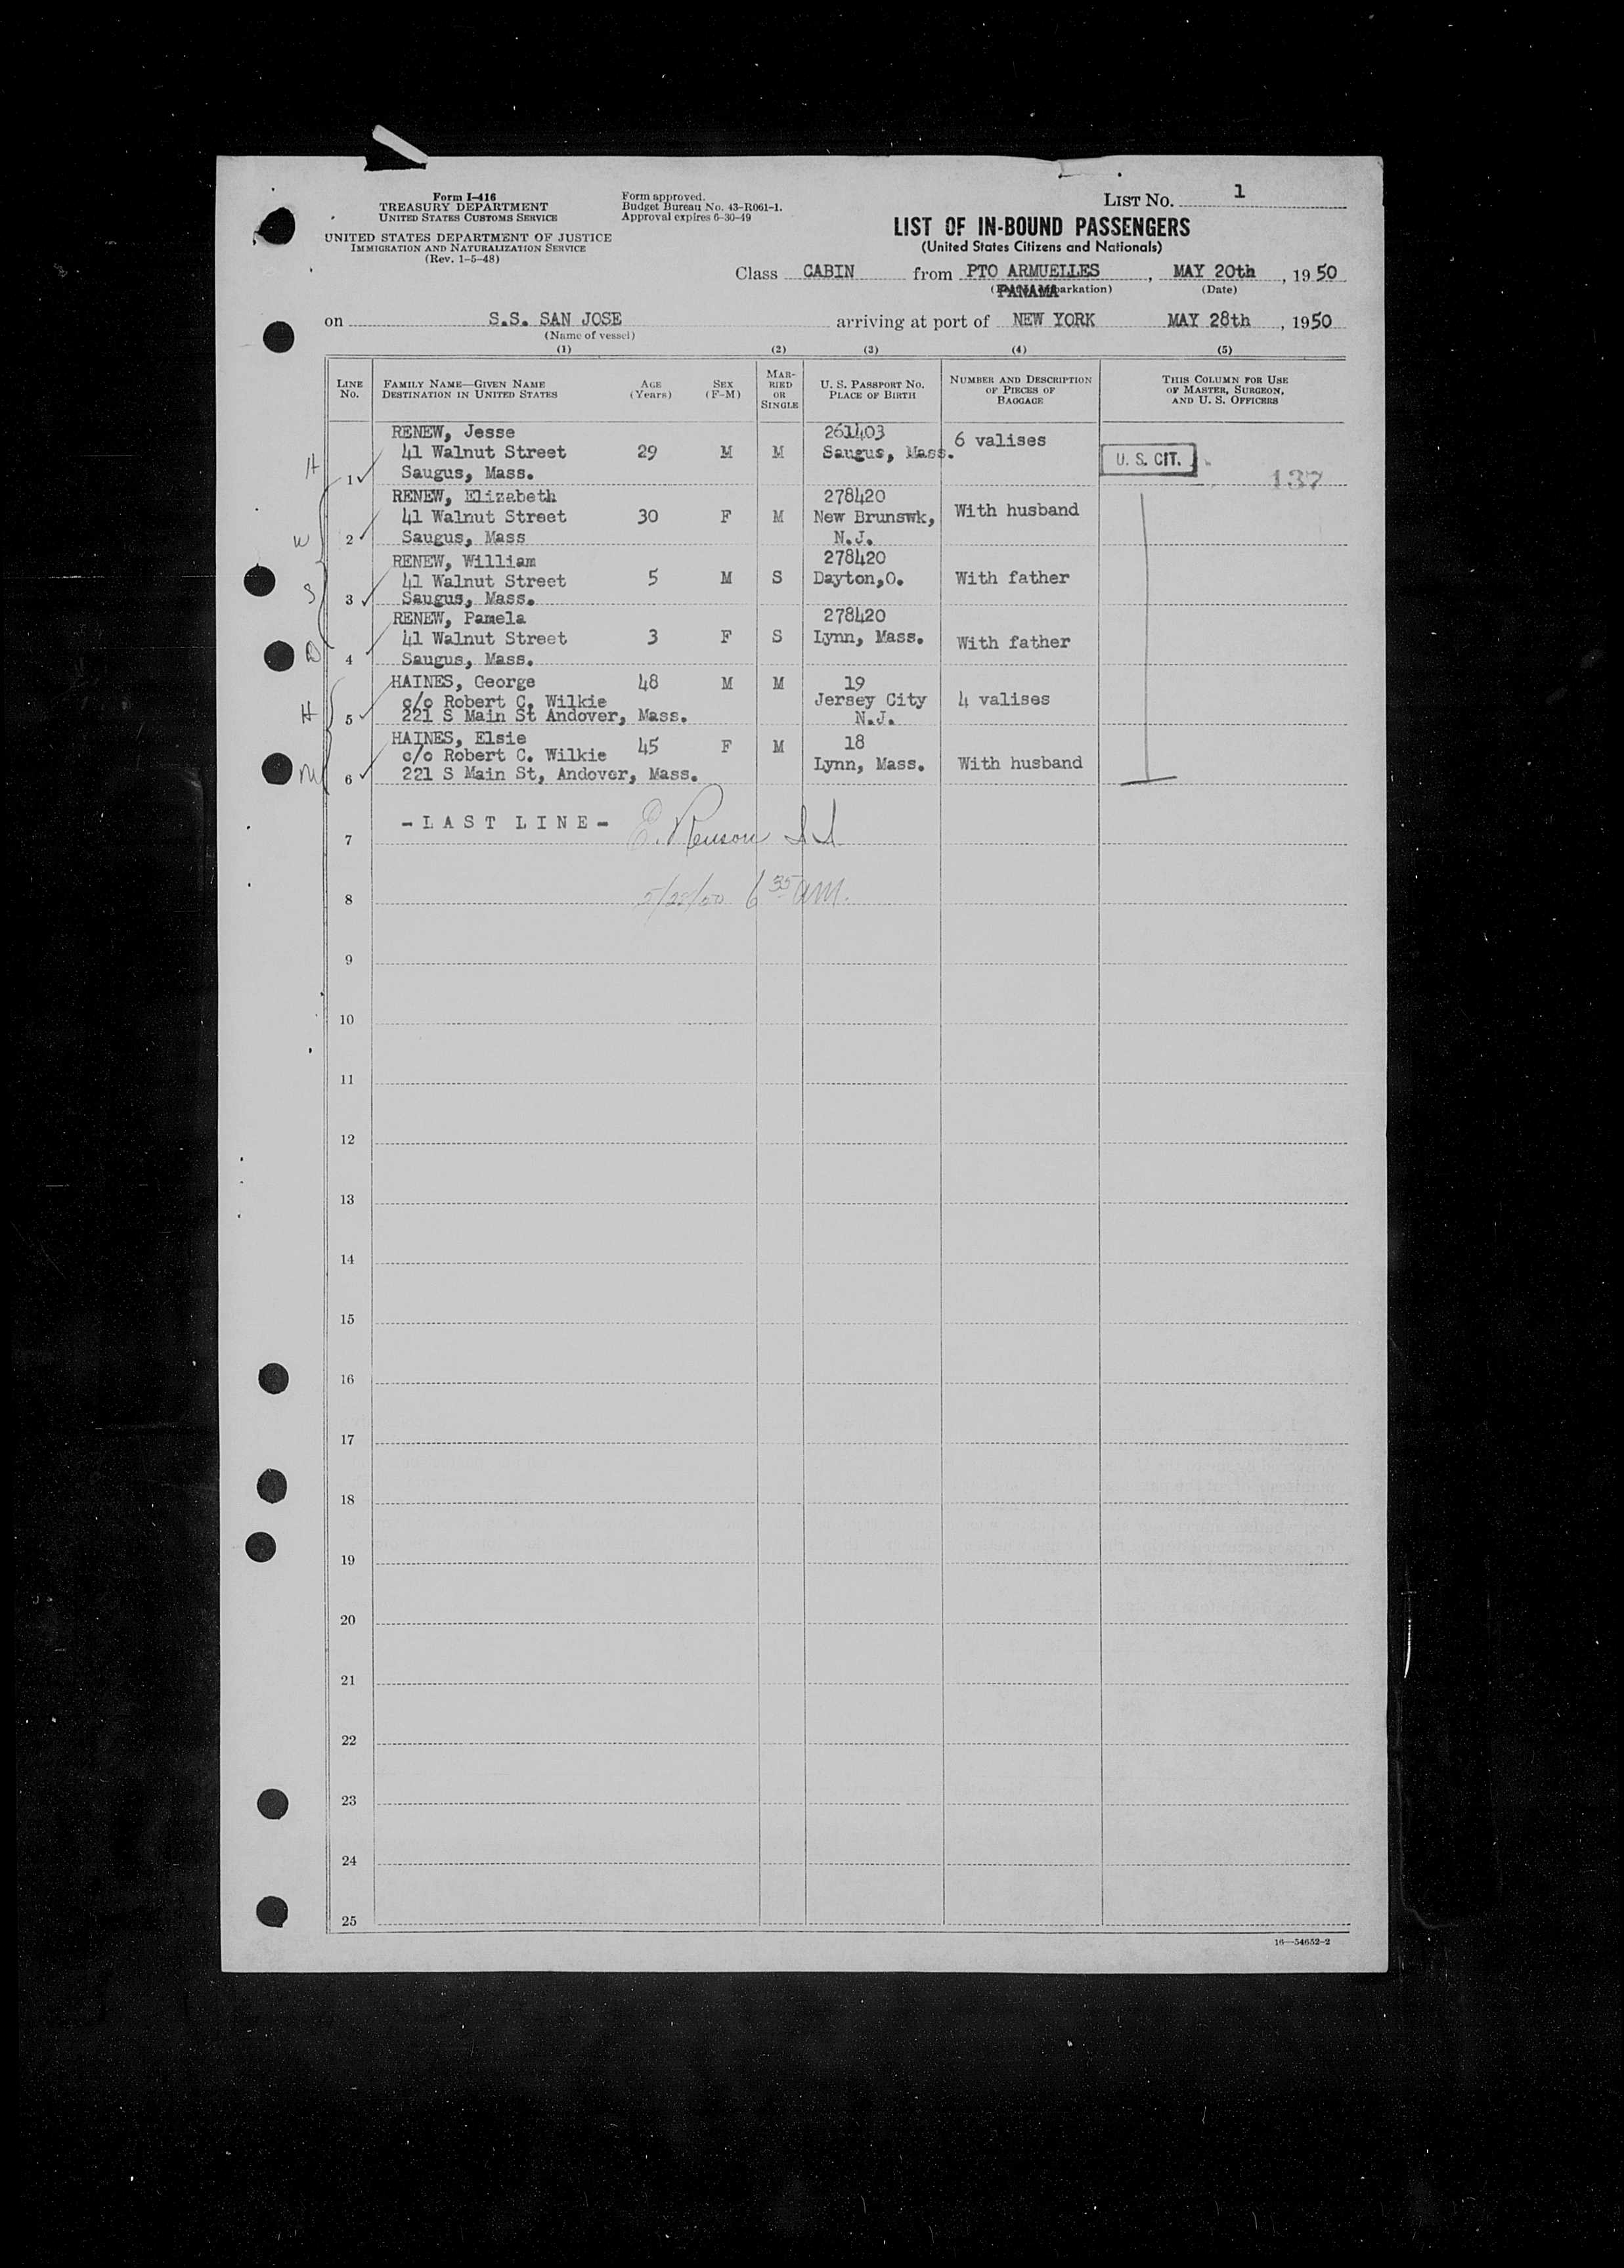 Form I-416
TREASURY DEPARTMENT
UNITED STATES CUSTOMS SERVICE
UNITED STATES DEPARTMENT OF JUSTICE
IMMIGRATION AND NATURALIZATION SERVICE
(Rev. 1-5-48)
Form approved.
Budget Bureau No. 43-R061-1.
Approval expires 6-30-49
LIST NO. 1
LIST OF IN-BOUND PASSENGERS
(United States Citizens and Nationals)
Class CABIN from PTO ARMUELLES, MAY 20th, 1950
PANAMA (Date)
on S.S. SAN JOSE arriving at port of NEW YORK MAY 28th, 1950
(Name of vessel)
(1) (2) (3) (4) (5)
LINE NO.
FAMILY NAME—GIVEN NAME
DESTINATION IN UNITED STATES
AGE (Years)
SEX (F-M)
MARRIED OR SINGLE
U. S. PASSPORT NO.
PLACE OF BIRTH
NUMBER AND DESCRIPTION OF PIECES OF BAGGAGE
THIS COLUMN FOR USE OF MASTER, SURGEON, AND U. S. OFFICERS
RENEW, Jesse 261403
41 Walnut Street 29 M M Saugus, Mass. 6 valises
H 1 Saugus, Mass. U. S. CIT. 137
RENEW, Elizabeth 278420
41 Walnut Street 30 F M New Brunswk, With husband
W 2 Saugus, Mass N.J.
RENEW, William 278420
41 Walnut Street 5 M S Dayton,O. With father
S 3 Saugus, Mass.
RENEW, Pamela 278420
41 Walnut Street 3 F S Lynn, Mass. With father
D 4 Saugus, Mass.
HAINES, George 48 M M 19
c/o Robert C. Wilkie Jersey City 4 valises
H 5 221 S Main St Andover, Mass. N.J.
HAINES, Elsie 45 F M 18
c/o Robert C. Wilkie Lynn, Mass. With husband
W 6 221 S Main St, Andover, Mass.
- L A S T  L I N E -
7
8 5/28/50 6 35 am.
9
10
11
12
13
14
15
16
17
18
19
20
21
22
23
24
25
16—54652-2